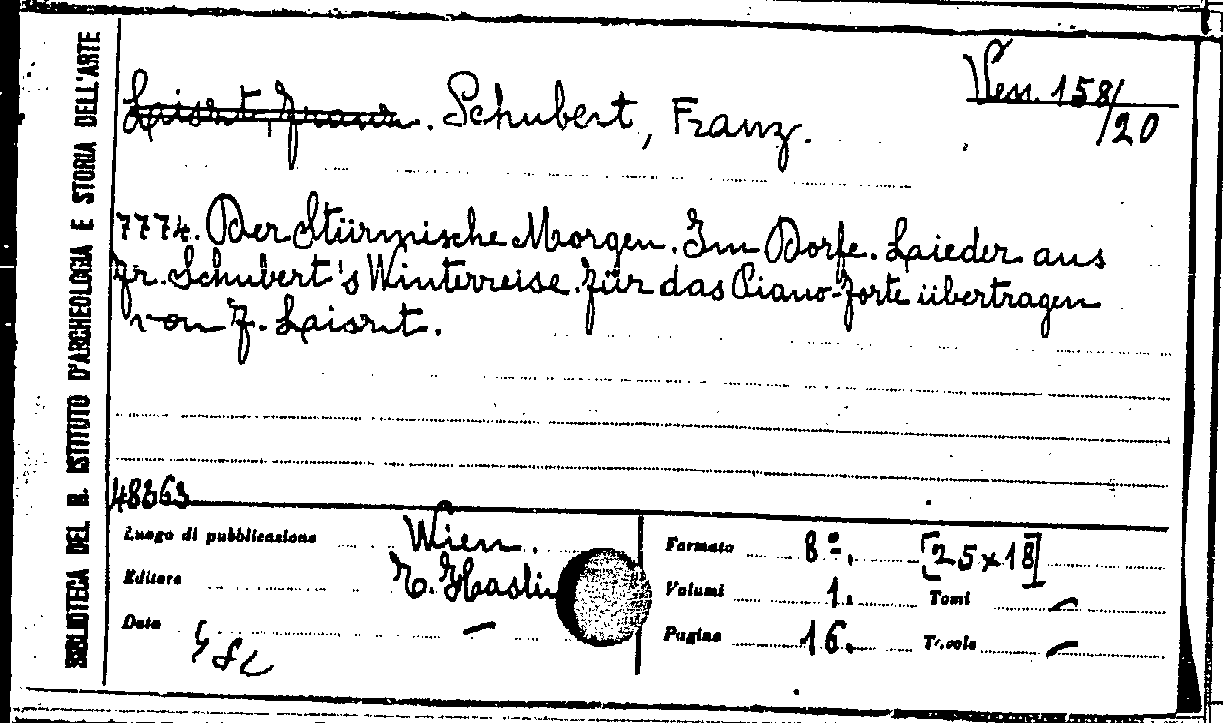 BIBLIOTECA DEL R. ISTITUTO D'ARCHEOLOGIA E STORIA DELL'ARTE
Vess. 158/20
Laisnt, Franz. Schubert, Franz.
7774. Der Stürmische Morgen. Im Dorfe. Laieder aus
Fr. Schubert's Winterreise. für das Piano-Forte übertragen
von F. Laisnt.
48363
Luogo di pubblicazione Wien.
Editore T. Haslin
Data —
Formato 8º. [25×18]
Volumi 1. Tomi —
Pagine 16. Tavole —